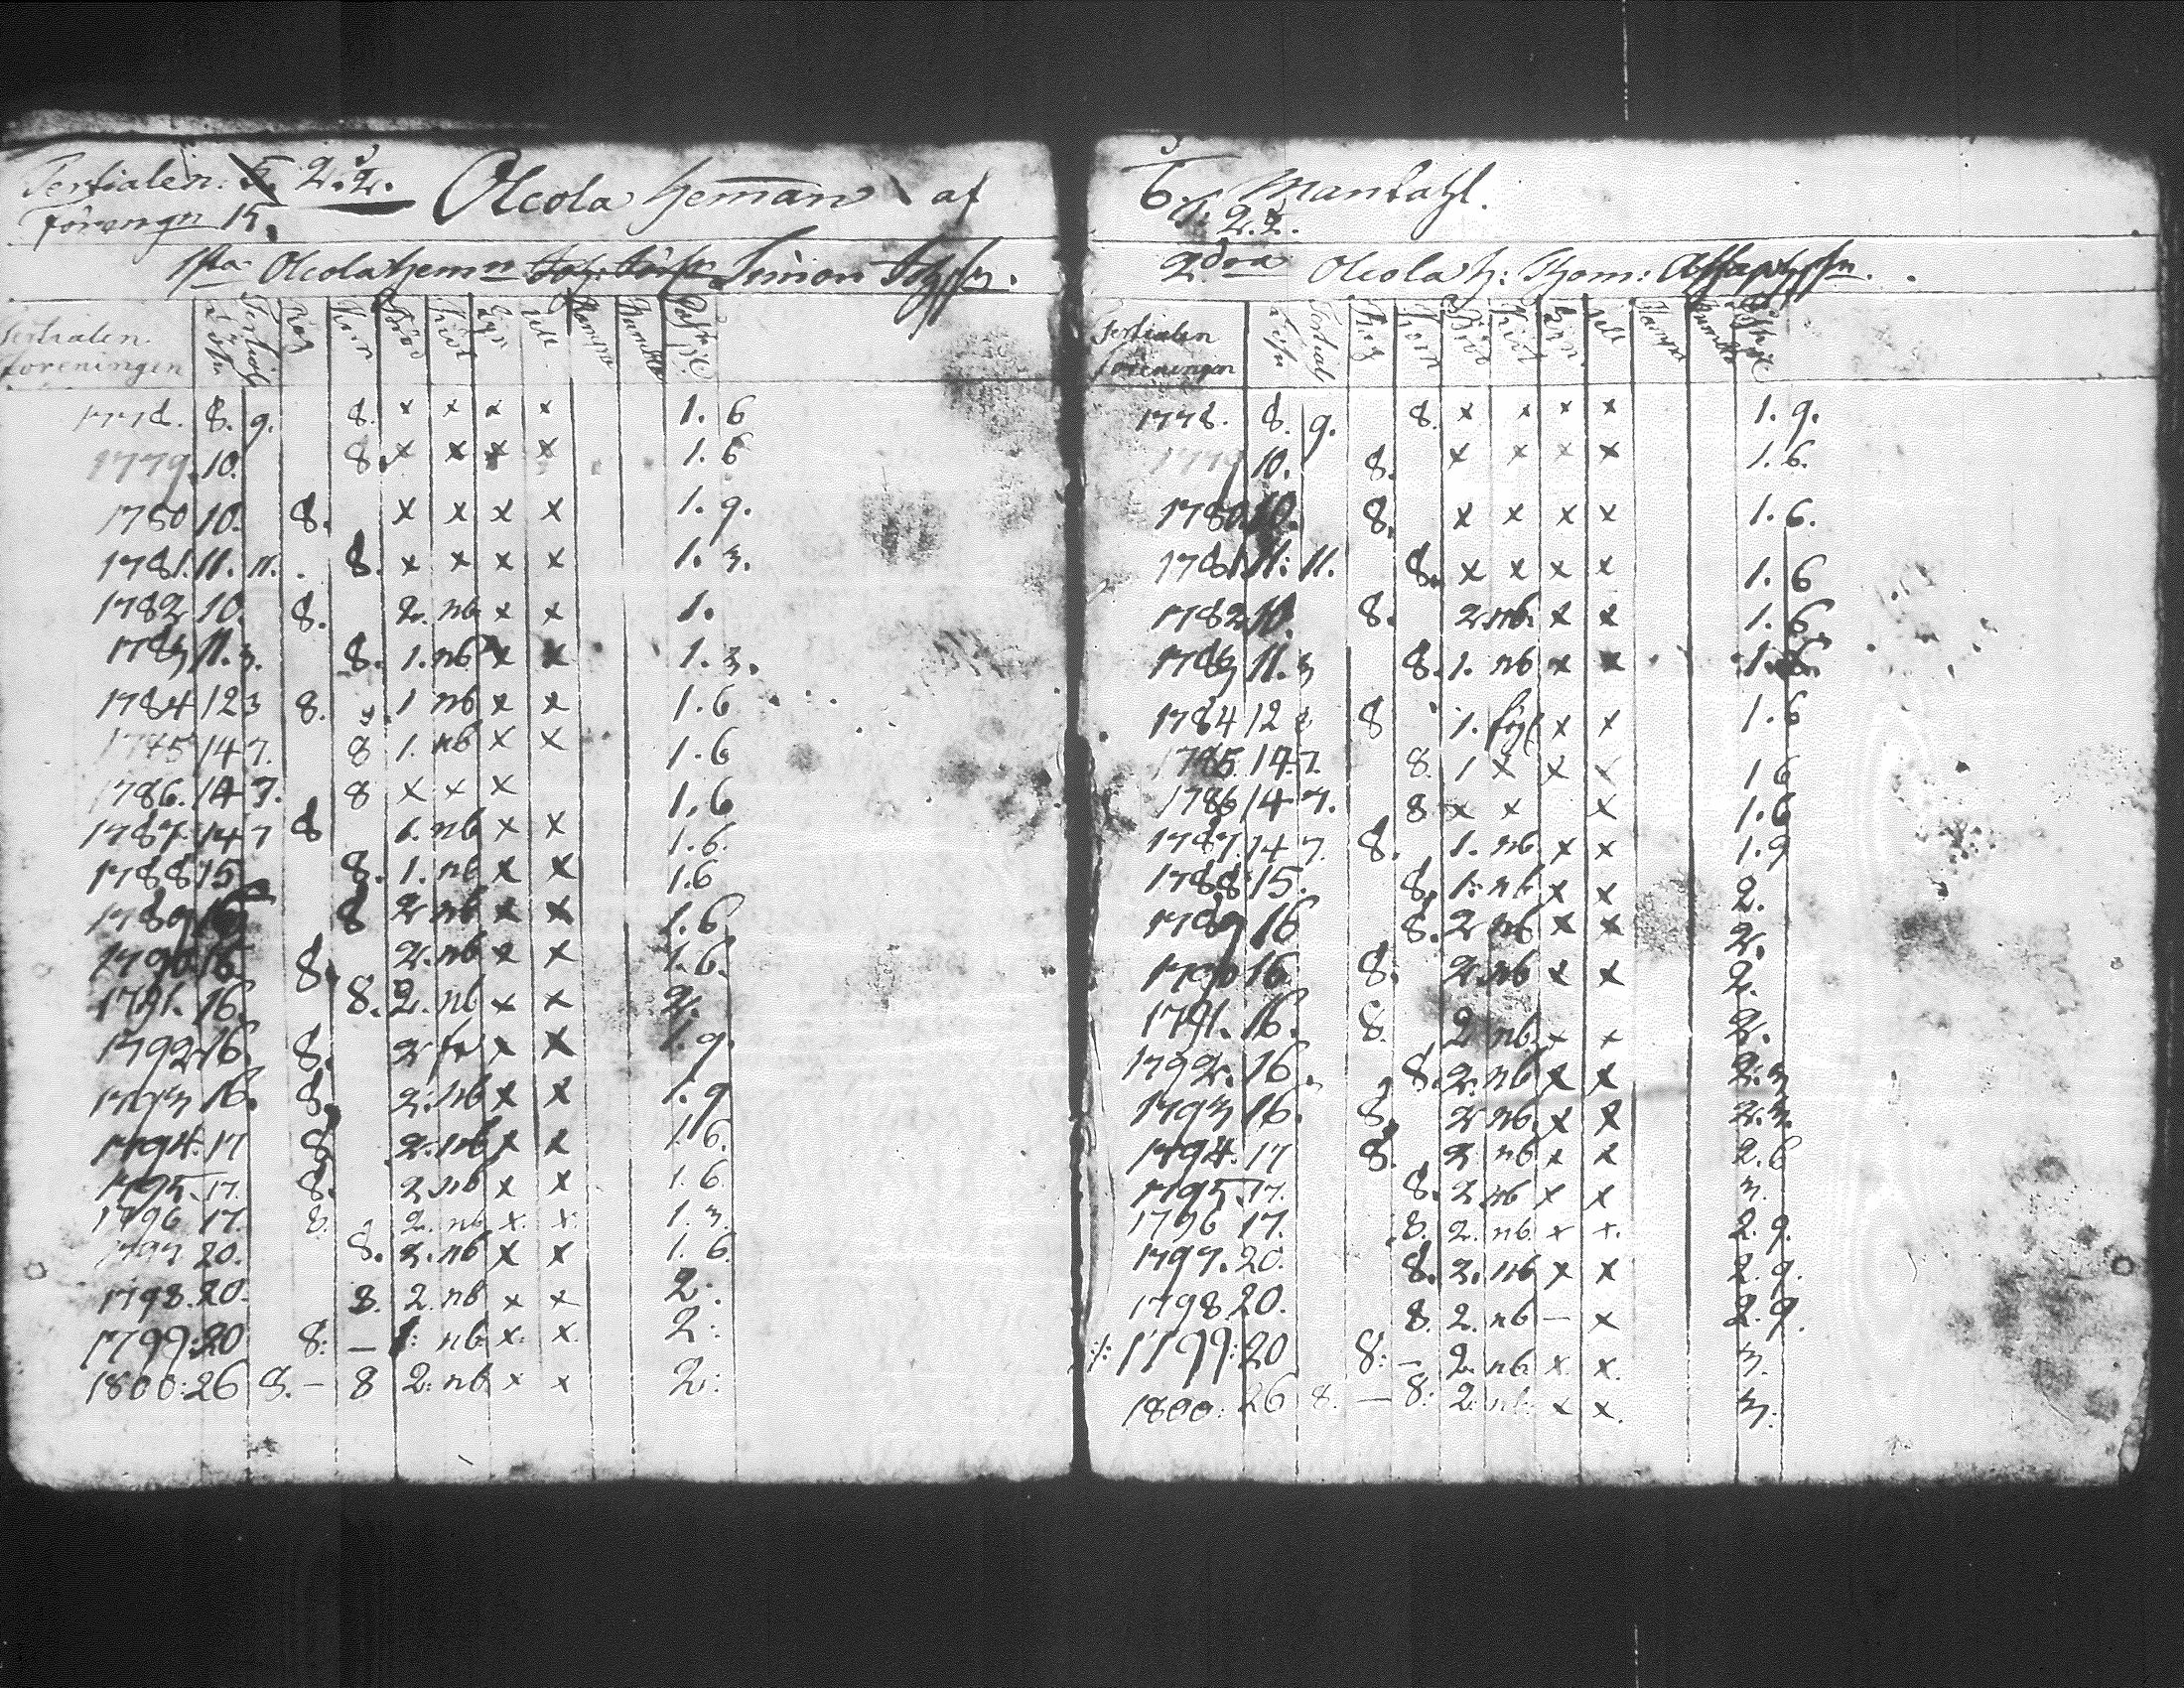 Tertialen: 5. 2.2.
förengn 15.
Olcola heman af
1sta Olcola hemn Simon
Tertialen Råg Korn Bröd Kiöt Lin Ull Hampa Humbla
foreningen
1778. 8. 9. 8. x x x x 1. 6
1779. 10. 8. x x x x 1. 6
1780 10. 8. x x x x 1. 9.
1781. 11. 11. 8. x x x x 1. 3.
1782 10. 8. 2. nb x x 1.
1783 11. 3. 8. 1. nb x x 1. 3.
1784 12 3 8. 1 nb x x 1. 6
1785 14 7. 8 1. nb x x 1. 6
1786. 14 7. 8 x x x 1. 6
1787. 14 7 8 1. nb x x 1. 6.
1788 15 8. 1. nb x x 1. 6
1789 16 8 2 nb x x 1. 6
1790. 16. 8. 2. nb x x 1. 6.
1791. 16. 8. 2. nb x x 2.
1792 16. 8. 2 x x 1. 9.
1793 16. 8. 2. nb x x 1. 9
1794. 17 8 2. nb x x 1. 6.
1795. 17. 8. 2. nb x x 1. 6
1796 17. 8. 2. nb x. x. 1. 3.
1797 20. 8. 2. nb x x 1. 6
1798. 20. 8. 2. nb x x 2.
1799: 20 8: — 1: nb x. x. 2:
1800: 26 8. — 8 2: nb x x 2:
6. Mantahl.
2.2.
2dra Olcola h: Thom:
Tertialen Tertial Råg Korn Bröd Kiöt Lin Ull Hampa Humbla
föreningen
1778. 8. 9. 8. x x x x 1. 9.
1779 10. 8. x x x x 1. 6.
1780. 10. 8. x x x x 1. 6.
1781. 11. 11. 8. x x x x 1. 6
1782 10. 8. 2. nb. x x 1. 6
1783 11. 3 8. 1. nb x x 1. 6.
1784 12 8 1. x x 1. 6
1785. 14. 7. 8. 1 x x x 1 6
1786 14 7. 8 x x x 1. 6
1787. 14 7. 8. 1. nb x x 1. 9
1788 15. 8. 1. nb x x 2.
1789 16 8. 2 nb x x 2.
1790 16. 8. 2. nb x x 2.
1791. 16. 8. 2 nb. x x 2.
1792. 16. 8. 2. nb x x 2. 3
1793 16. 8. 2 nb. x x 2. 3.
1794. 17 8. 2 nb x x 2. 6
1795. 17. 8. 2 nb x x 3.
1796 17. 8. 2. nb. x x. 2. 9.
1797. 20. 8. 2. nb x x 2. 9.
1798 20. 8. 2. nb — x 2. 9.
1799: 20 8: — 2. nb. x x. 3.
1800: 26 8. — 8: 2: nb. x x. 3.